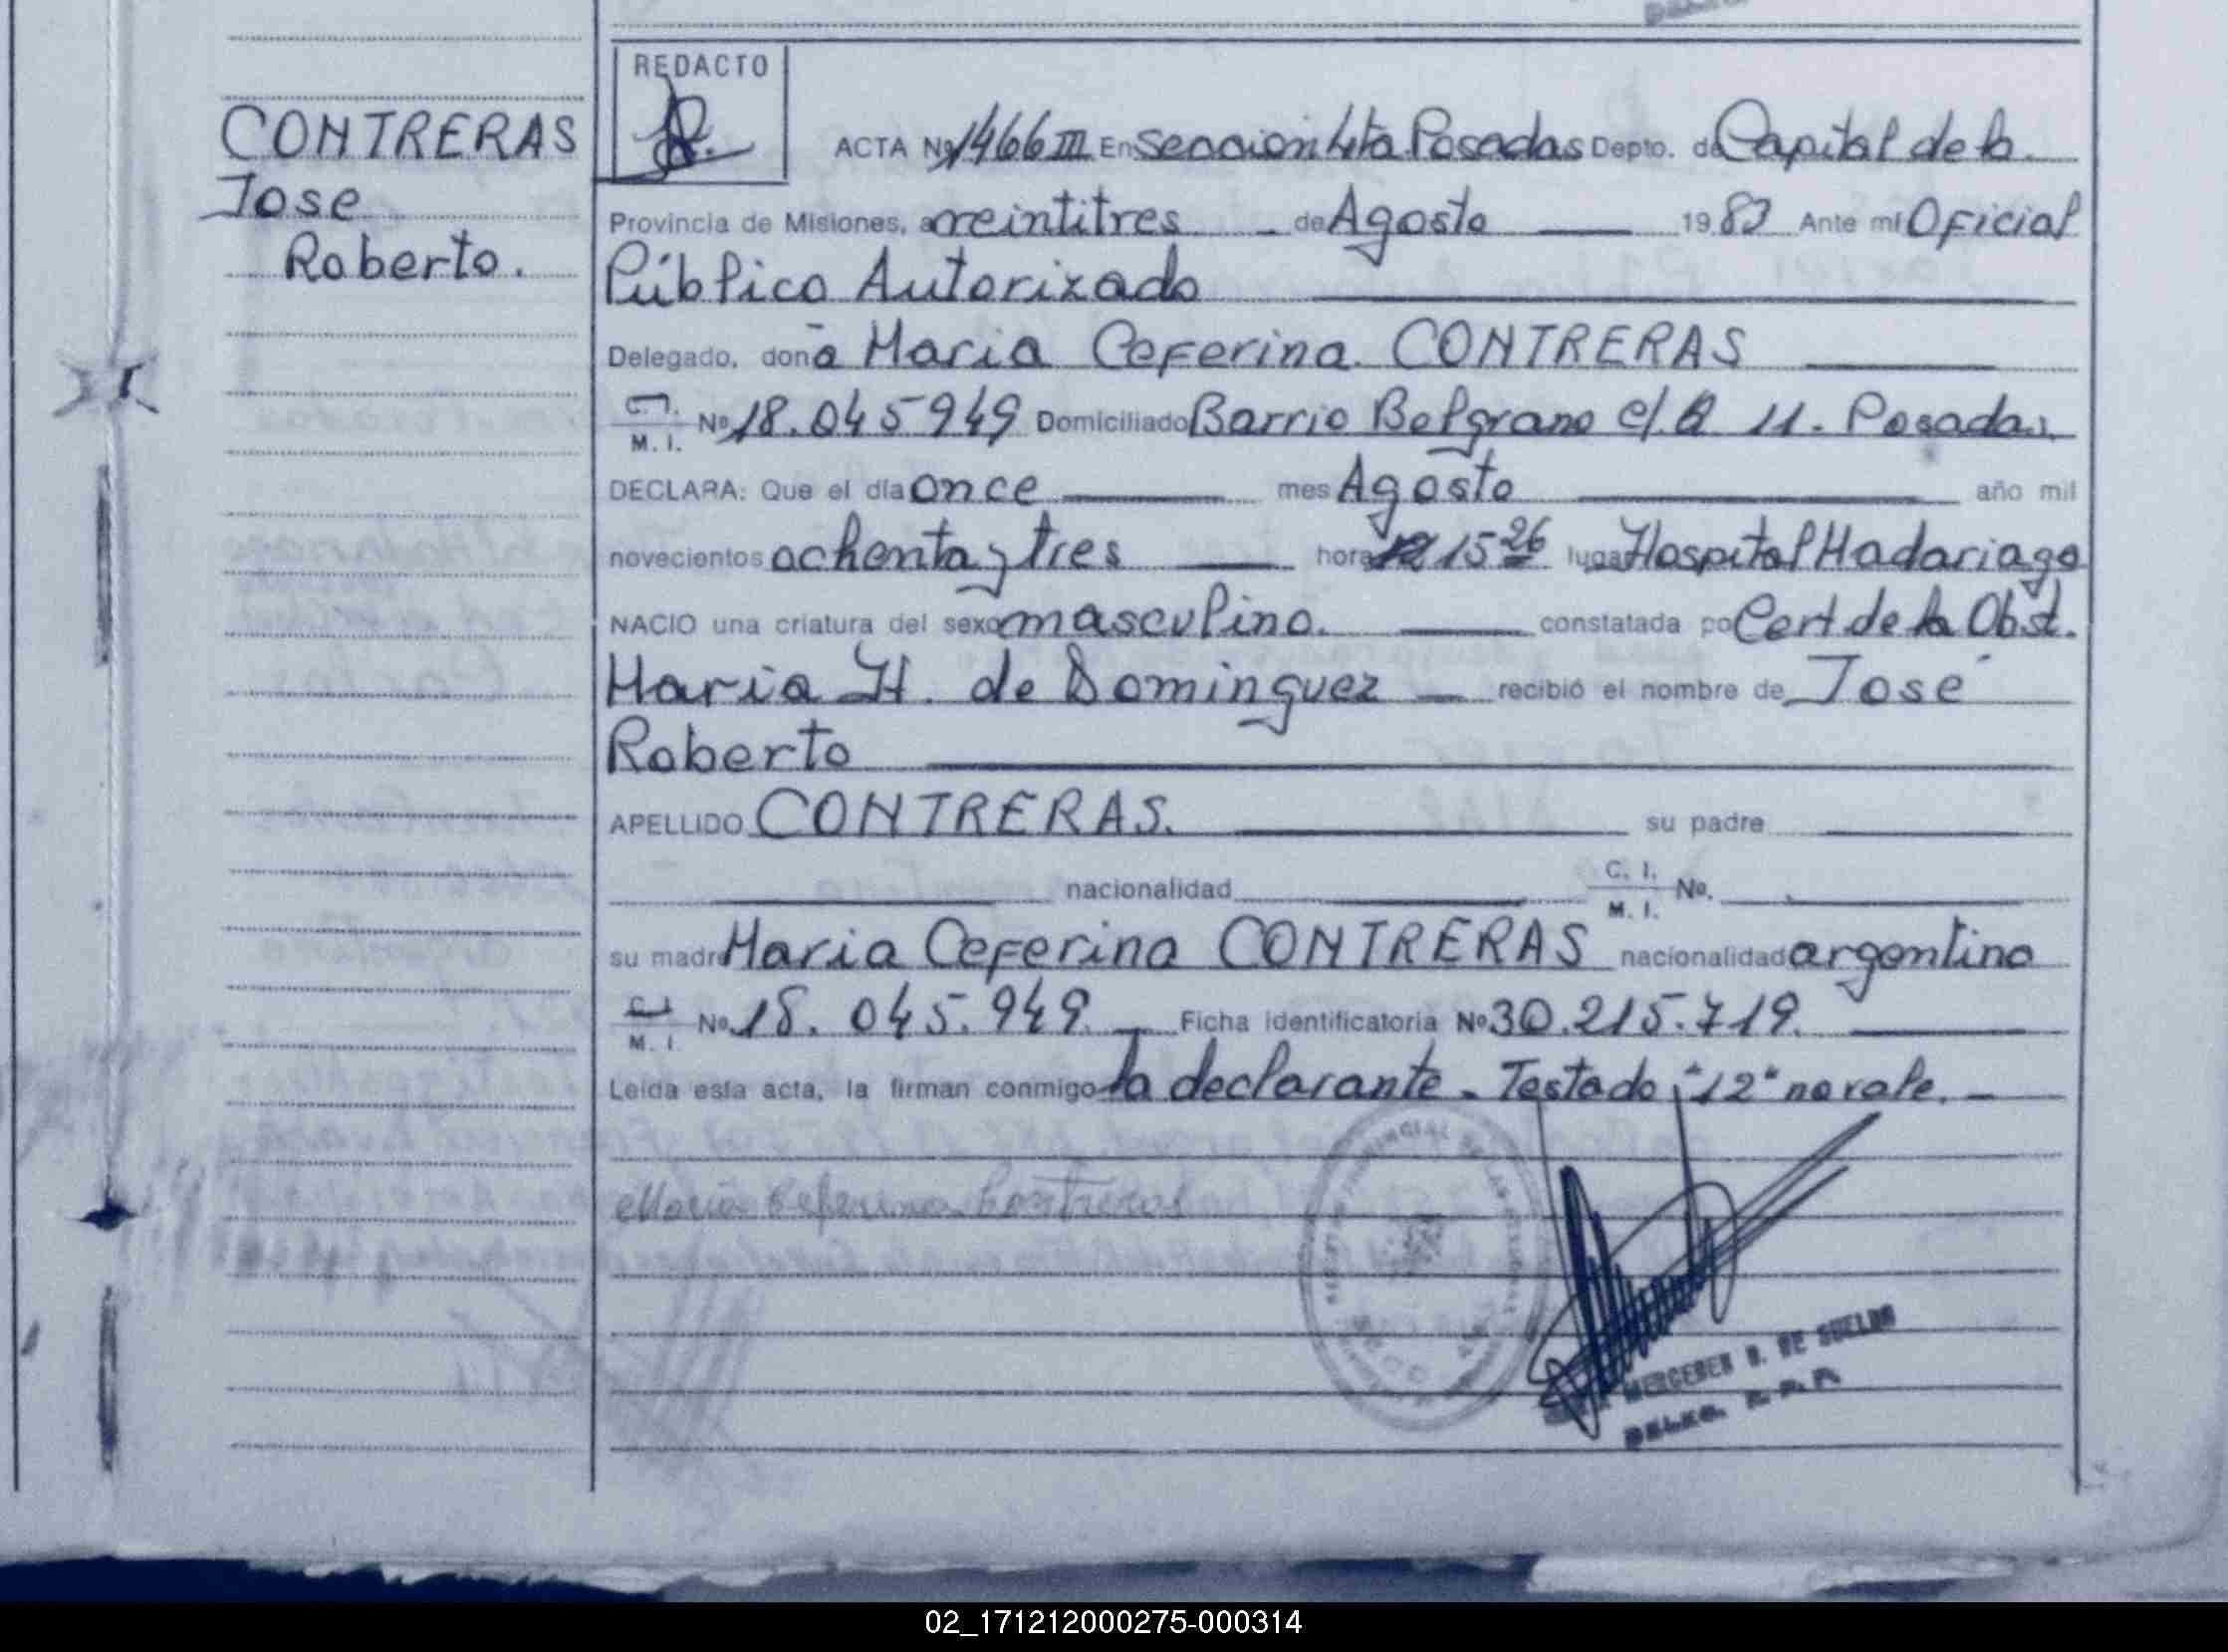 CONTRERAS
Jose
Roberto.
REDACTO
ACTA Nº 1466 III En seccion 4ta Posadas Depto. de Capital de la
Provincia de Misiones, a veintitres de Agosto 1983 Ante mí Oficial
Público Autorizado
Delegado, doña Maria Ceferina CONTRERAS
C.I.
M. I. Nº 18.045949 Domiciliado Barrio Belgrano c/. Q 11. Posadas.
DECLARA: Que el día once mes Agosto año mil
novecientos ochenta y tres hora 12 15 26 lugar Hospital Madariaga
NACIO una criatura del sexo masculino. constatada por Cert de la Obst.
Maria H. de Dominguez recibió el nombre de José
Roberto
APELLIDO CONTRERAS. su padre
nacionalidad C. I.
M. I. Nº.
su madre Maria Ceferina CONTRERAS nacionalidad argentina
C.I.
M. I. Nº 18. 045. 949. Ficha identificatoria Nº 30.215.719.
Leída esta acta, la firman conmigo la declarante. Testado: "12" no vale.
Maria Ceferina Contreras
DE
02_171212000275-000314